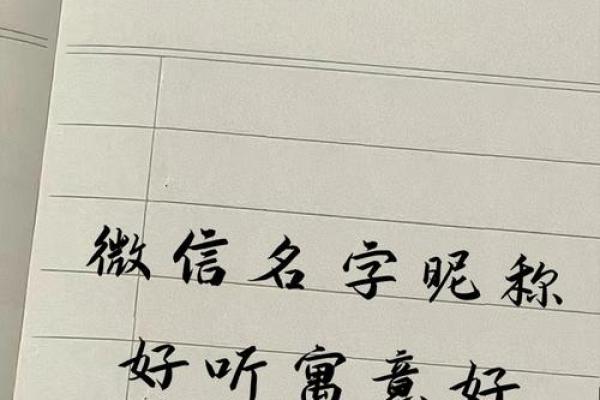 微信名字昵称
好听寓意好